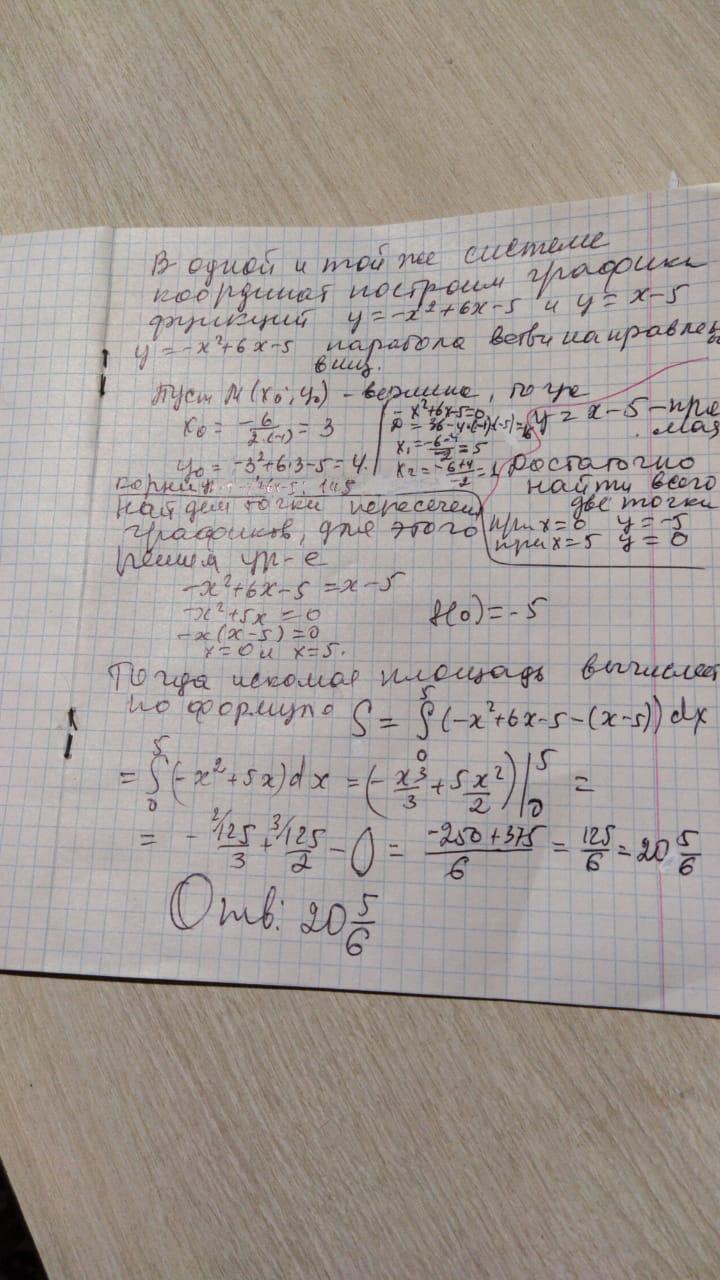 В одной и той же системе
координат построим графики
функций y = -x²+6x-5 и y = x-5
y = -x²+6x-5 парабола ветви направлены
вниз.
Пуст M(x₀; y₀) - вершина, тогда
x₀ = -6/2·(-1) = 3
y₀ = -3²+6·3-5 = 4.
корни 1 и 5
-x²+6x-5=0
D = 36-4·(-1)·(-5)=16
x₁ = -6-4/-2 = 5
x₂ = -6+4/-2 = 1
y = x-5 - прямая
Достаточно
найти всего
две точки
при x=0 y = -5
при x=5 y = 0
найдем точки пересечен
графиков, для этого
решим ур-е
-x²+6x-5 = x-5
-x²+5x = 0
-x(x-5)=0
x=0 и x=5.
f(0) = -5
Тогда искомая площадь вычисляет
по формуле S = ⁵∫₀(-x²+6x-5-(x-5))dx
= ⁵∫₀(-x²+5x)dx = (-x³/3 + 5x²/2)|⁵₀ =
= - ²⁄125/3 + ³⁄125/2 - 0 = -250+375/6 = 125/6 = 20 5/6
Отв: 20 5/6